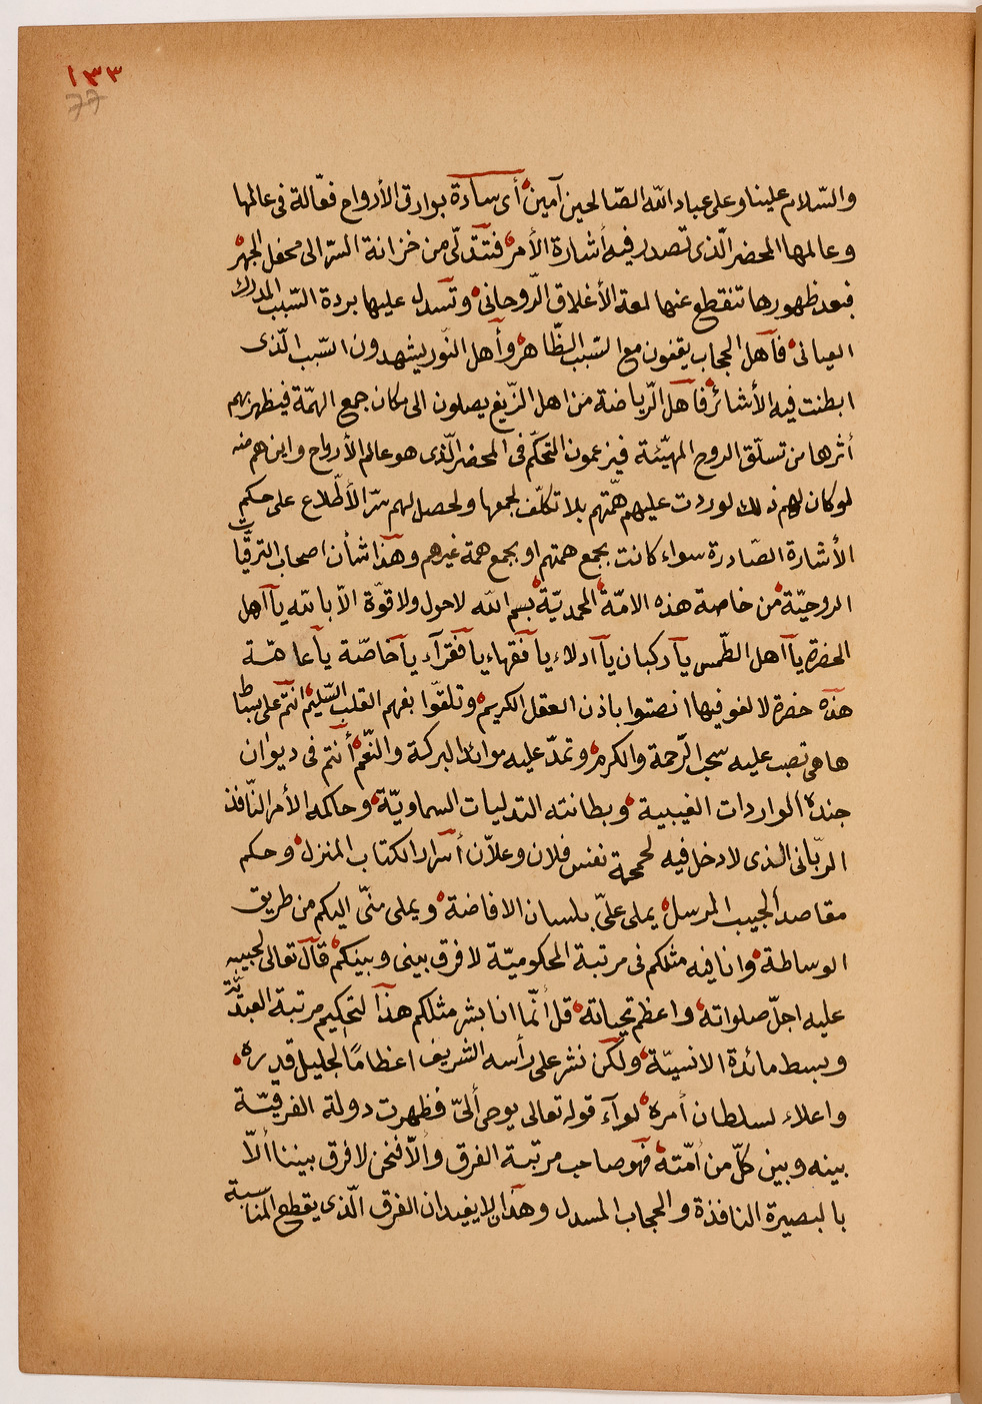 ١٣٣
77
والسّلام علينا وعلى عباد الله الصّالحين آمين أى سادة بوارق الأرواح فعّالة فى عالمها
وعالمها المحضر الّذى تصدر فيه أشارة الأمر فتتدلّى من خزانة السرّ الى محفل الجهر
فبعد ظهورها تنقطع عنها لمعة الأغلاق الرّوحانى وتسدل عليها بردة السّبب المدرك
العيانى فآهل الحجاب يقفون مع السّبب الظّاهر وأهل النّور يشهدون السّبب الّذى
ابطنت فيه الأشائر فآهل الرّياضة من اهل الزّيغ يصلون الى مكان جمع الهمّة فيظهر بهم
أثرها من تسلّق الروح المهيّئة فيزعمون التحكّم فى المحضر الّذى هو عالم الأرواح واين هم منه
لو كان لهم ذلك لوردت عليهم همّتهم بلا تكلّف لجمعها ولحصل لهم سرّ الأطّلاع على حكم
الأشارة الصّادرة سواء كانت بجمع همتهم او بجمع همة غيرهم وهذا شأن اصحاب الترقّيات
الروحيّة من خاصة هذه الامّة المحمديّة بسم الله لا حول ولا قوّة الاّ بالله يآ آهل
الحضرة يآ آهل الطّمس يآ ركبان يآ ادلاء يآ فقهاء يآ فقرآء يآ خاصّة يآ عامّة
هذه حضرة لا لغو فيها انصتوا باذن العقل الكريم وتلقّوا بفهم القلب السّليم انتم على بساط
ها هى تصب عليه سحب الرّحمة والكرم وتمدّ عليه موائد البركة والنّعم أنتم فى ديوان
جنده الواردات الغيبية وبطانته التدليات السماويّة وحاكمه الأمر النّافذ
الربّانى الذى لا دخل فيه لحمحمة نفس فلان وعلاّن أسرار الكتاب المنزل وحكم
مقاصد الحبيب المرسل يملى علىّ بلسان الافاضة ويملى منّى اليكم من طريق
الوساطة وانا فيه مثلكم فى مرتبة المحكوميّة لا فرق بينى وبينكم قال تعالى لحبيبه
عليه اجلّ صلواته واعظم تحياته قل انّما انا بشر مثلكم هذا لتحكيم مرتبة العبديّة
وبسط مائدة الانسيّة ولكن نشر على رأسه الشريف اعظامًا لجليل قدره
واعلاء لسلطان أمره لوآء قوله تعالى يوحى ألىّ فظهرت دولة الفرقيّة
بينه وبين كلّ من أمّته فهو صاحب مرتبة الفرق وألاّ فنحن لا فرق بيننا ألاّ
بالبصيرة النافذة والحجاب المسدل وهذان لا يفيدان الفرق الّذى يقطع المناسبة